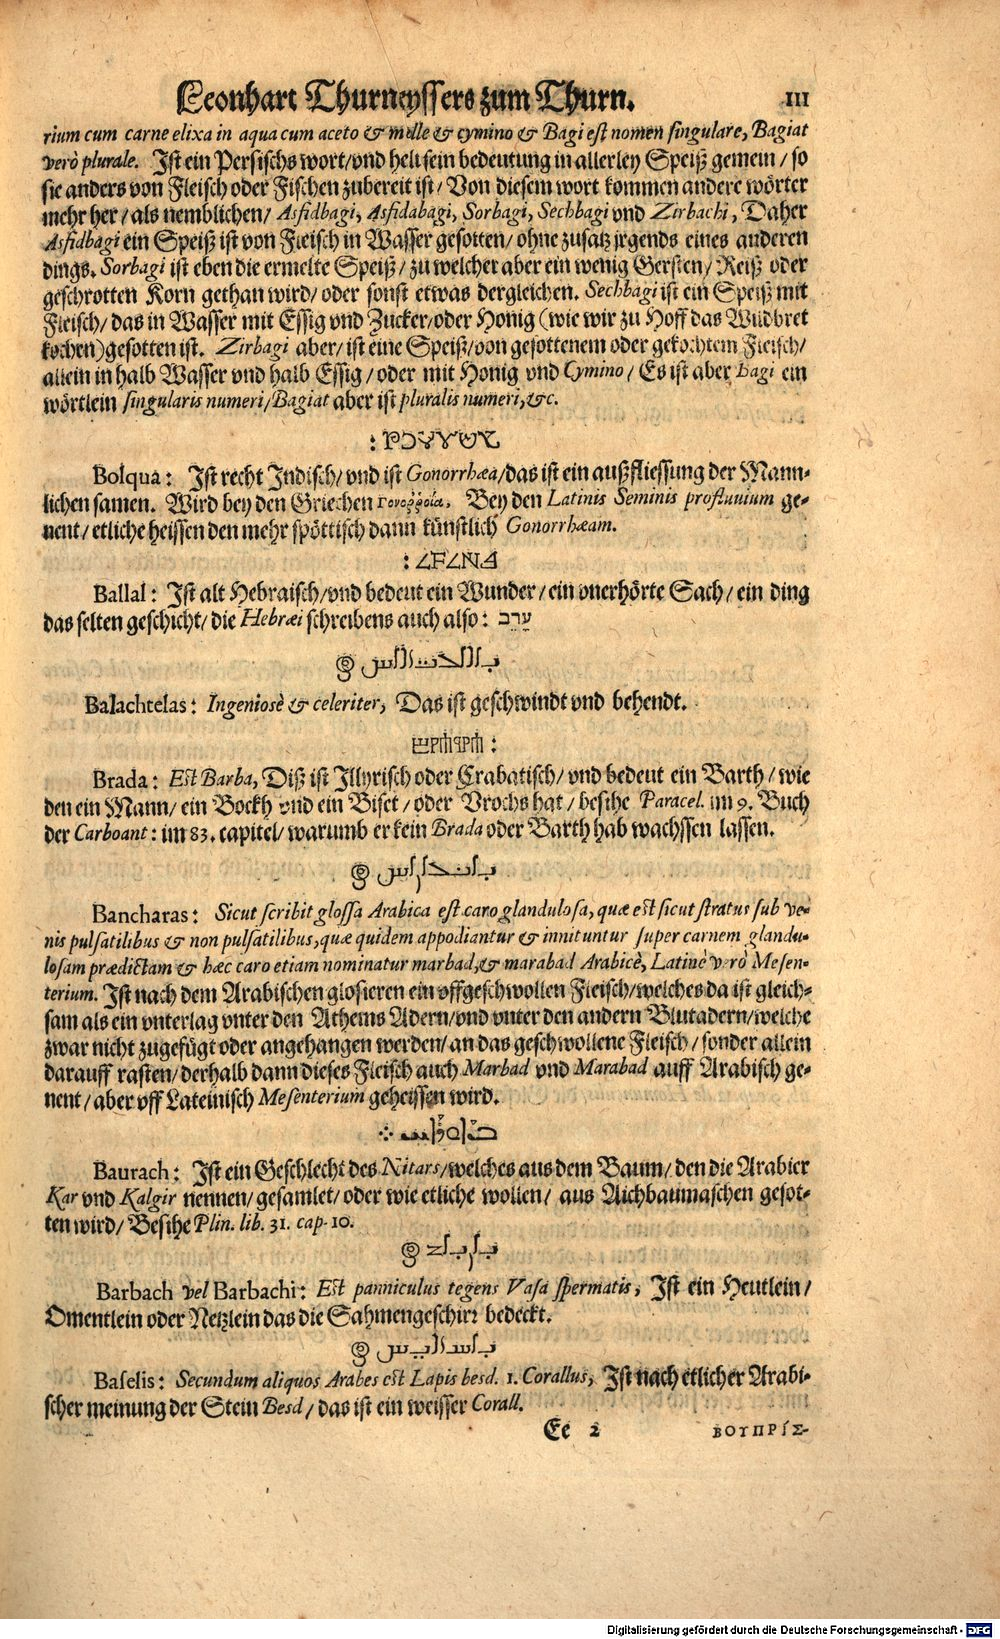 Leonhart Thurneyssers zum Thurn. 111
rium cum carne elixa in aqua cum aceto & melle & cymino & Bagi est nomen singulare, Bagiat
verò plurale. Ist ein Persischs wort/vnd helt sein bedeutung in allerley Speiß gemein/so
sie anders von Fleisch oder Fischen zubereit ist/Von diesem wort kommen andere wörter
mehr her/als nemblichen/Asfidbagi, Asfidabagi, Sorbagi, Sechbagi vnd Zirbachi, Daher
Asfidbagi ein Speiß ist von Fleisch in Wasser gesotten/ohne zusatz jrgends eines anderen
dings. Sorbagi ist eben die ermelte Speiß/zu welcher aber ein wenig Gersten/Reiß oder
geschrotten Korn gethan wird/oder sonst etwas dergleichen. Sechbagi ist ein Speiß mit
Fleisch/das in Wasser mit Essig vnd Zucker/oder Honig (wie wir zu Hoff das Wildbret
kochen) gesotten ist. Zirbagi aber/ist eine Speiß/von gesottenem oder gekochtem Fleisch/
allein in halb Wasser vnd halb Essig/oder mit Honig vnd Cymino/Es ist aber Bagi ein
wörtlein singularis numeri/Bagiat aber ist pluralis numeri,&c.
Bolqua: Ist recht Indisch/vnd ist Gonorrhæa/das ist ein außfliessung der Mann-
lichen samen. Wird bey den Griechen Γονοῤῥοία, Bey den Latinis Seminis profluvium ge-
nent/etliche heissen den mehr spöttisch dann künstlich Gonorrhæam.
Ballal: Ist alt Hebraisch/vnd bedeut ein Wunder/ein vnerhörte Sach/ein ding
das selten geschicht/die Hebræi schreibens auch also: עָרֵב
Balachtelas: Ingeniosè & celeriter, Das ist geschwindt vnd behendt.
Brada: Est Barba, Diß ist Illyrisch oder Crabatisch/vnd bedeut ein Barth/wie
den ein Mann/ein Bockh vnd ein Biset/oder Vrochs hat/besihe Paracel. im 9. Buch
der Carboant: im 83. capitel/warumb er kein Brada oder Barth hab wachssen lassen.
Bancharas: Sicut scribit glossa Arabica est caro glandulosa, quæ est sicut stratus sub ve-
nis pulsatilibus & non pulsatilibus, quæ quidem appodiantur & innituntur super carnem glandu-
losam prædictam & hæc caro etiam nominatur marbad,& marabad Arabicè, Latinè verò Mesen-
terium. Ist nach dem Arabischen glosieren ein vffgeschwollen Fleisch/welches da ist gleich-
sam als ein vnterlag vnter den Athems Adern/vnd vnter den andern Blutadern/welche
zwar nicht zugefügt oder angehangen werden/an das geschwollene Fleisch/sonder allein
darauff rasten/derhalb dann dieses Fleisch auch Marbad vnd Marabad auff Arabisch ge-
nent/aber vff Lateinisch Mesenterium geheissen wird.
Baurach: Ist ein Geschlecht des Nitars/welches aus dem Baum/den die Arabier
Kar vnd Kalgir nennen/gesamlet/oder wie etliche wollen/aus Aichbaumaschen gesot-
ten wird/Besihe Plin. lib. 31. cap. 10.
Barbach vel Barbachi: Est panniculus tegens Vasa spermatis, Ist ein Heutlein/
Omentlein oder Netzlein das die Sahmengeschirr bedeckt.
Baselis: Secundum aliquos Arabes est Lapis besd. 1. Corallus, Ist nach etlicher Arabi-
scher meinung der Stein Besd/das ist ein weisser Corall.
Ee 2 ΒΟΥΠΡΊΣ-
Digitalisierung gefördert durch die Deutsche Forschungsgemeinschaft - DFG